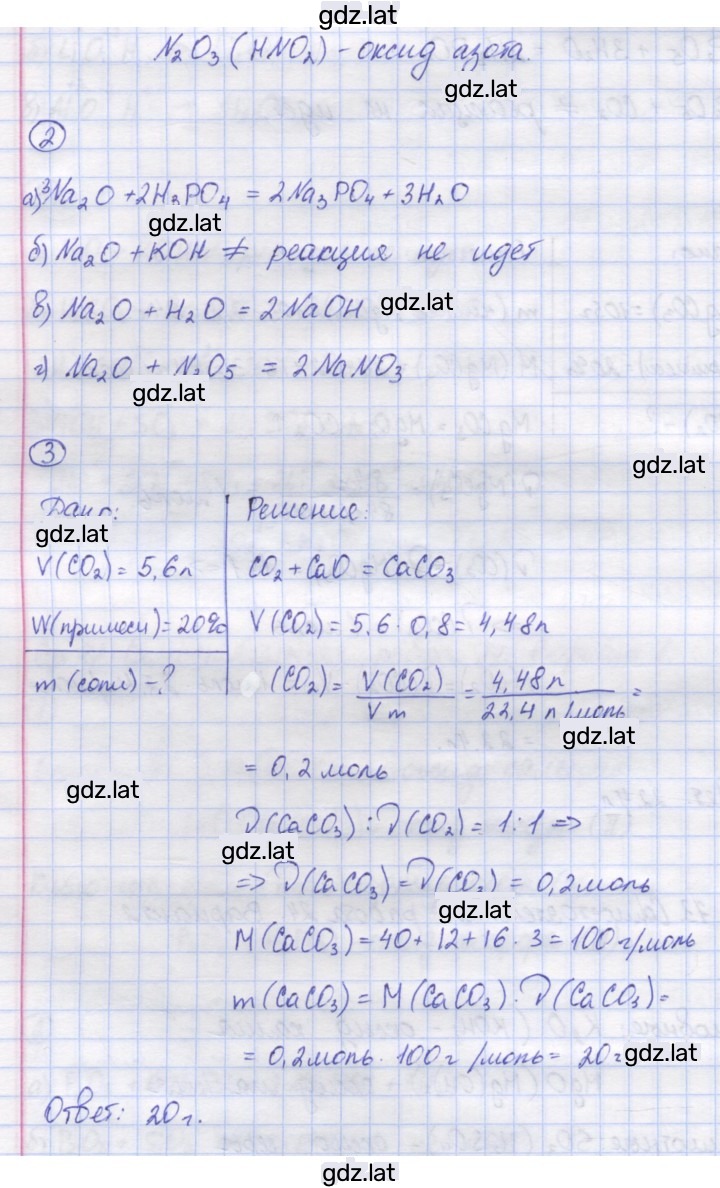 gdz.lat
N₂O₃ (HNO₂) - оксид азота.
gdz.lat
2
а) 3Na₂O + 2H₂PO₄ = 2Na₃PO₄ + 3H₂O
gdz.lat
б) Na₂O + KOH ≠ реакция не идет
в) Na₂O + H₂O = 2NaOH gdz.lat
г) Na₂O + N₂O₅ = 2NaNO₃
gdz.lat
3
gdz.lat
Дано: Решение:
gdz.lat
V(CO₂) = 5,6л CO₂ + CaO = CaCO₃
W(примеси) = 20% V(CO₂) = 5,6 · 0,8 = 4,48л
m (соли) - ? (CO₂) = V(CO₂) / Vm = 4,48л / 22,4 л/моль =
gdz.lat
= 0,2 моль
gdz.lat
ν(CaCO₃) : ν(CO₂) = 1:1 =>
gdz.lat
=> ν(CaCO₃) = ν(CO₂) = 0,2моль
gdz.lat
M(CaCO₃) = 40 + 12 + 16 · 3 = 100 г/моль
m(CaCO₃) = M(CaCO₃) · ν(CaCO₃) =
= 0,2моль · 100г/моль = 20г gdz.lat
Ответ: 20г.
gdz.lat